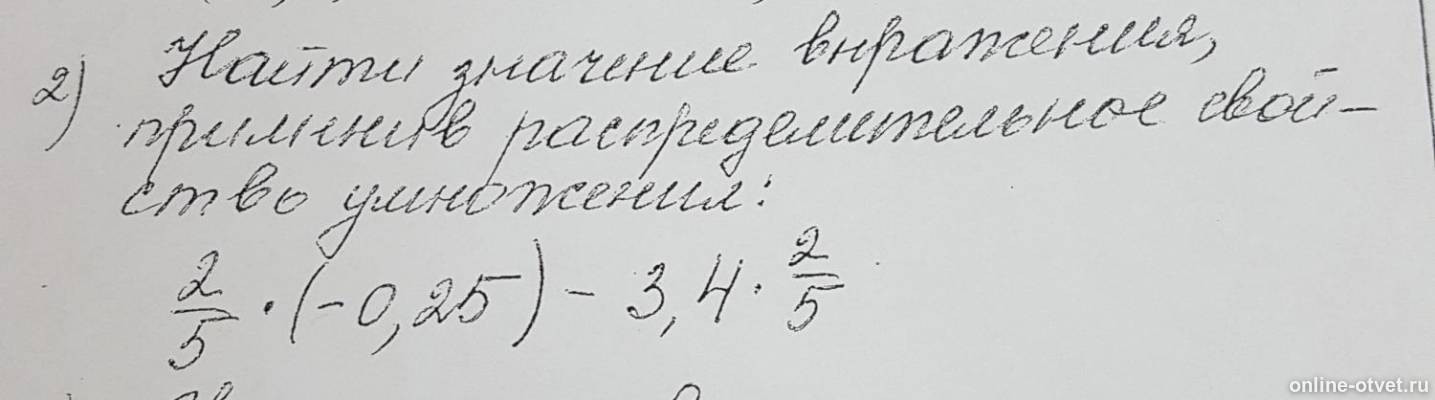 2) Найти значение выражения,
применив распределительное свой-
ство умножения:
2/5 · (-0,25) - 3,4 · 2/5
online-otvet.ru